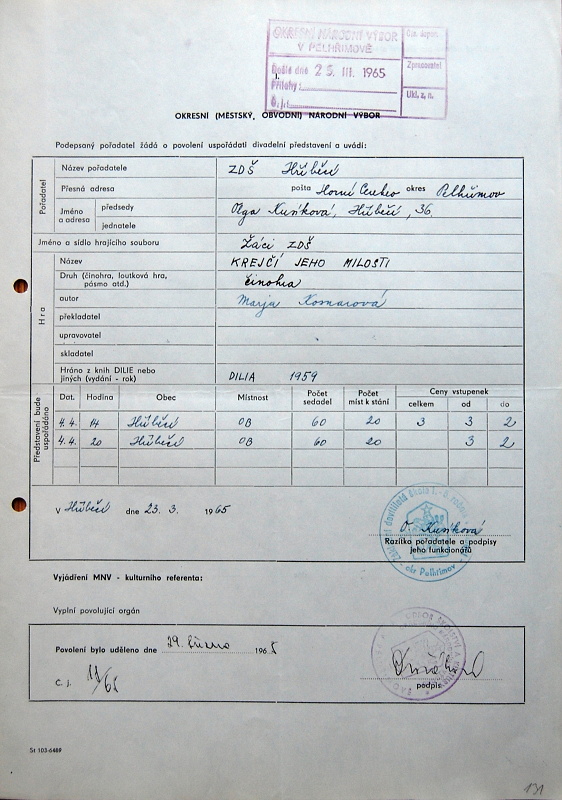 OKRESNÍ NÁRODNÍ VÝBOR
V PELHŘIMOVĚ
Došlo dne 25. III. 1965
Přílohy:
Č. j.:
Zpracovatel
Ukl. zn.
OKRESNÍ (MĚSTSKÝ, OBVODNÍ) NÁRODNÍ VÝBOR
Podepsaný pořadatel žádá o povolení uspořádati divadelní představení a uvádí:
Pořadatel
Název pořadatele ZDŠ Hříběcí
Přesná adresa pošta Horní Cerekev okres Pelhřimov
Jméno a adresa předsedy Olga Kusíková, Hříběcí, 36.
jednatele
Jméno a sídlo hrajícího souboru Žáci ZDŠ
Hra
Název KREJČÍ JEHO MILOSTI
Druh (činohra, loutková hra, pásmo atd.) činohra
autor Marja Komarová
překladatel
upravovatel
skladatel
Hráno z knih DILIE nebo jiných (vydání - rok) DILIA 1959
Představení bude uspořádáno
Dat. Hodina Obec Místnost Počet sedadel Počet míst k stání Ceny vstupenek
celkem od do
4.4. 14 Hříběcí OB 60 20 3 3 2
4.4. 20 Hříběcí OB 60 20 3 2
V Hříběcí dne 23. 3. 1965
O. Kusíková
Razítko pořadatele a podpisy
jeho funkcionářů
okr. Pelhřimov
Vyjádření MNV - kulturního referenta:
Vyplní povolující orgán
Povolení bylo uděleno dne 29. března 1965
Č. j. 11/65
podpis
St 103-6489
131